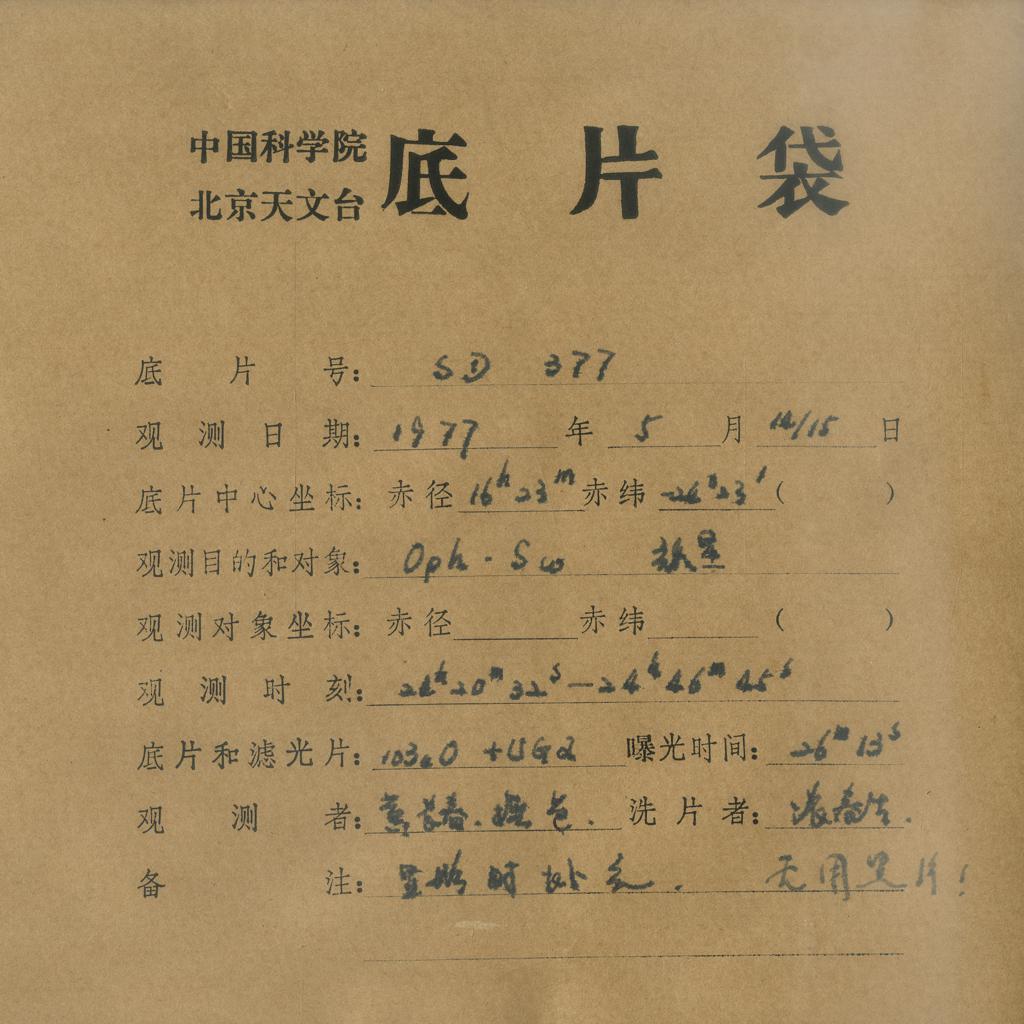 中国科学院
北京天文台
底片袋
底片号： SD 377
观测日期： 1977 年 5 月 14/15 日
底片中心坐标： 赤径 16h23m 赤纬 -24°23′ ( )
观测目的和对象： Oph-Sco 星
观测对象坐标： 赤径 赤纬 ( )
观测时刻： 24h20m32s—24h46m45s
底片和滤光片： 103aO +UG2 曝光时间： 26m13s
观测者： 洗片者：
备注： 时 无用 片！